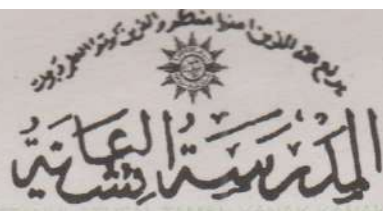 يرفع الله الذين امنوا منكم والذين اوتوا العلم درجات
المدرسة